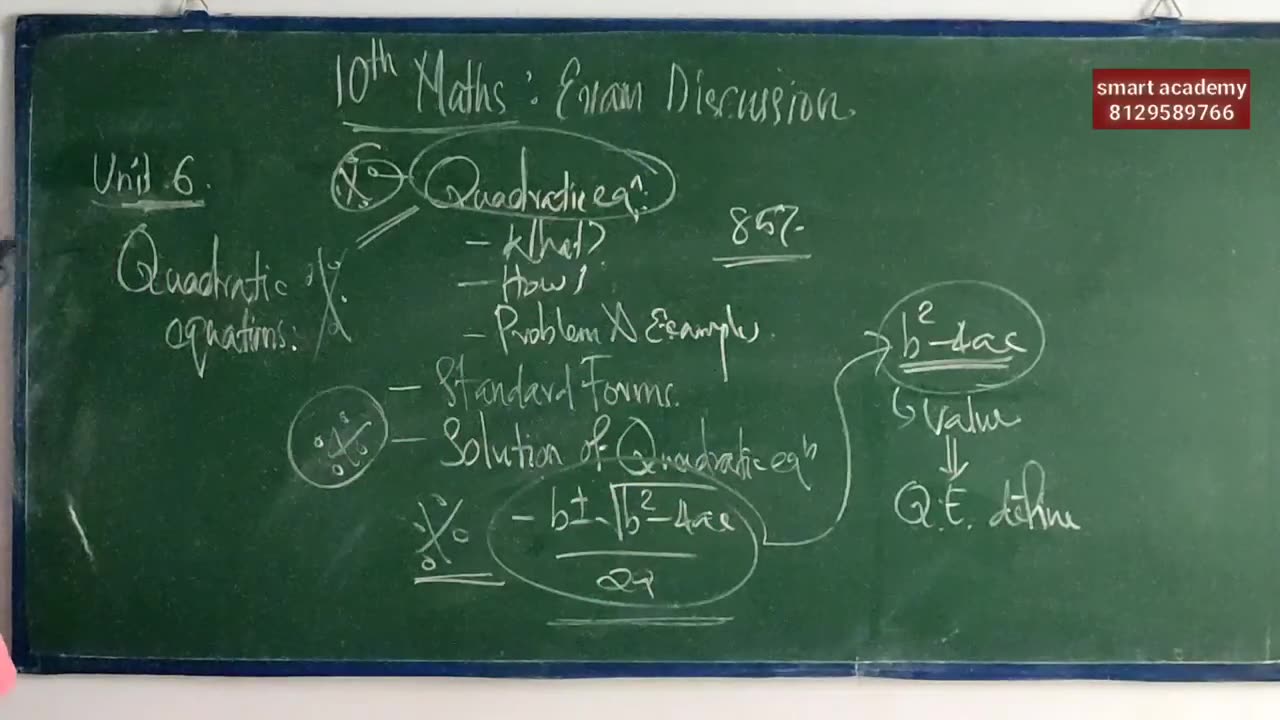 10th Maths : Exam Discussion.
smart academy
8129589766
Unit 6.
Quadratic
equations:
Quadratic eqn:
- What?
- How?
- Problem Examples.
85%
- Standard Forms.
- Solution of Quadratic eqn
-b±√b²-4ac
2a
b²-4ac
value
⇓
Q.E. define